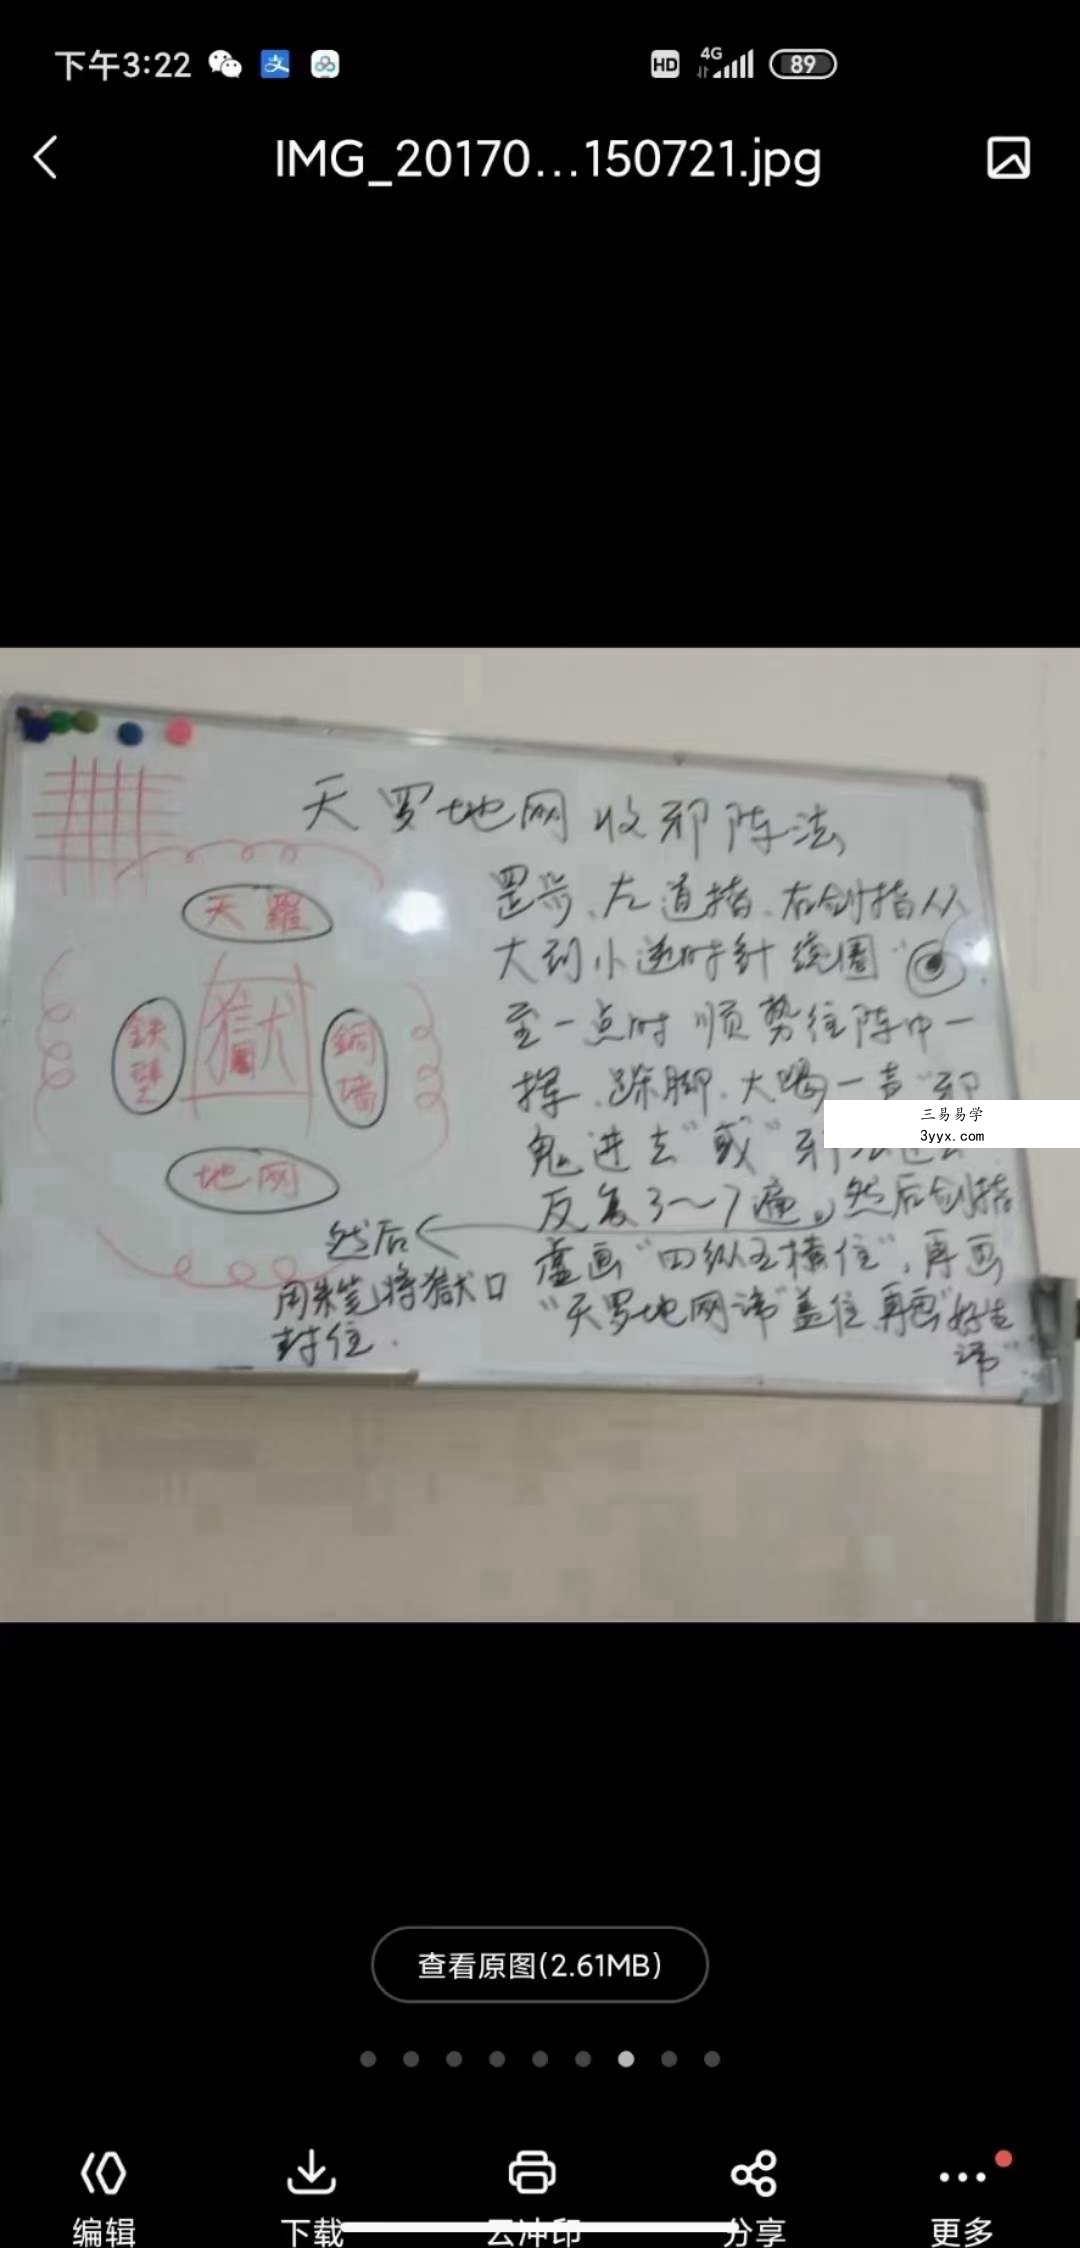 下午3:22
HD 4G 89
IMG_20170...150721.jpg
天罗地网收邪阵法
天羅
鉄壁
獄
銅墙
地网
罡步、左道指、右剑指从
大到小逆时针绕圈"
至一点时顺势往阵中一
挥、跺脚、大喝一声"邪
鬼进去"或"邪
反复3~7遍。然后剑指
虚画"四纵五横住",再画
"天罗地网讳"盖住再画"好生
讳"
然后
用朱笔将獄口
封住.
三易易学
3yyx.com
查看原图(2.61MB)
编辑
下载
云冲印
分享
更多